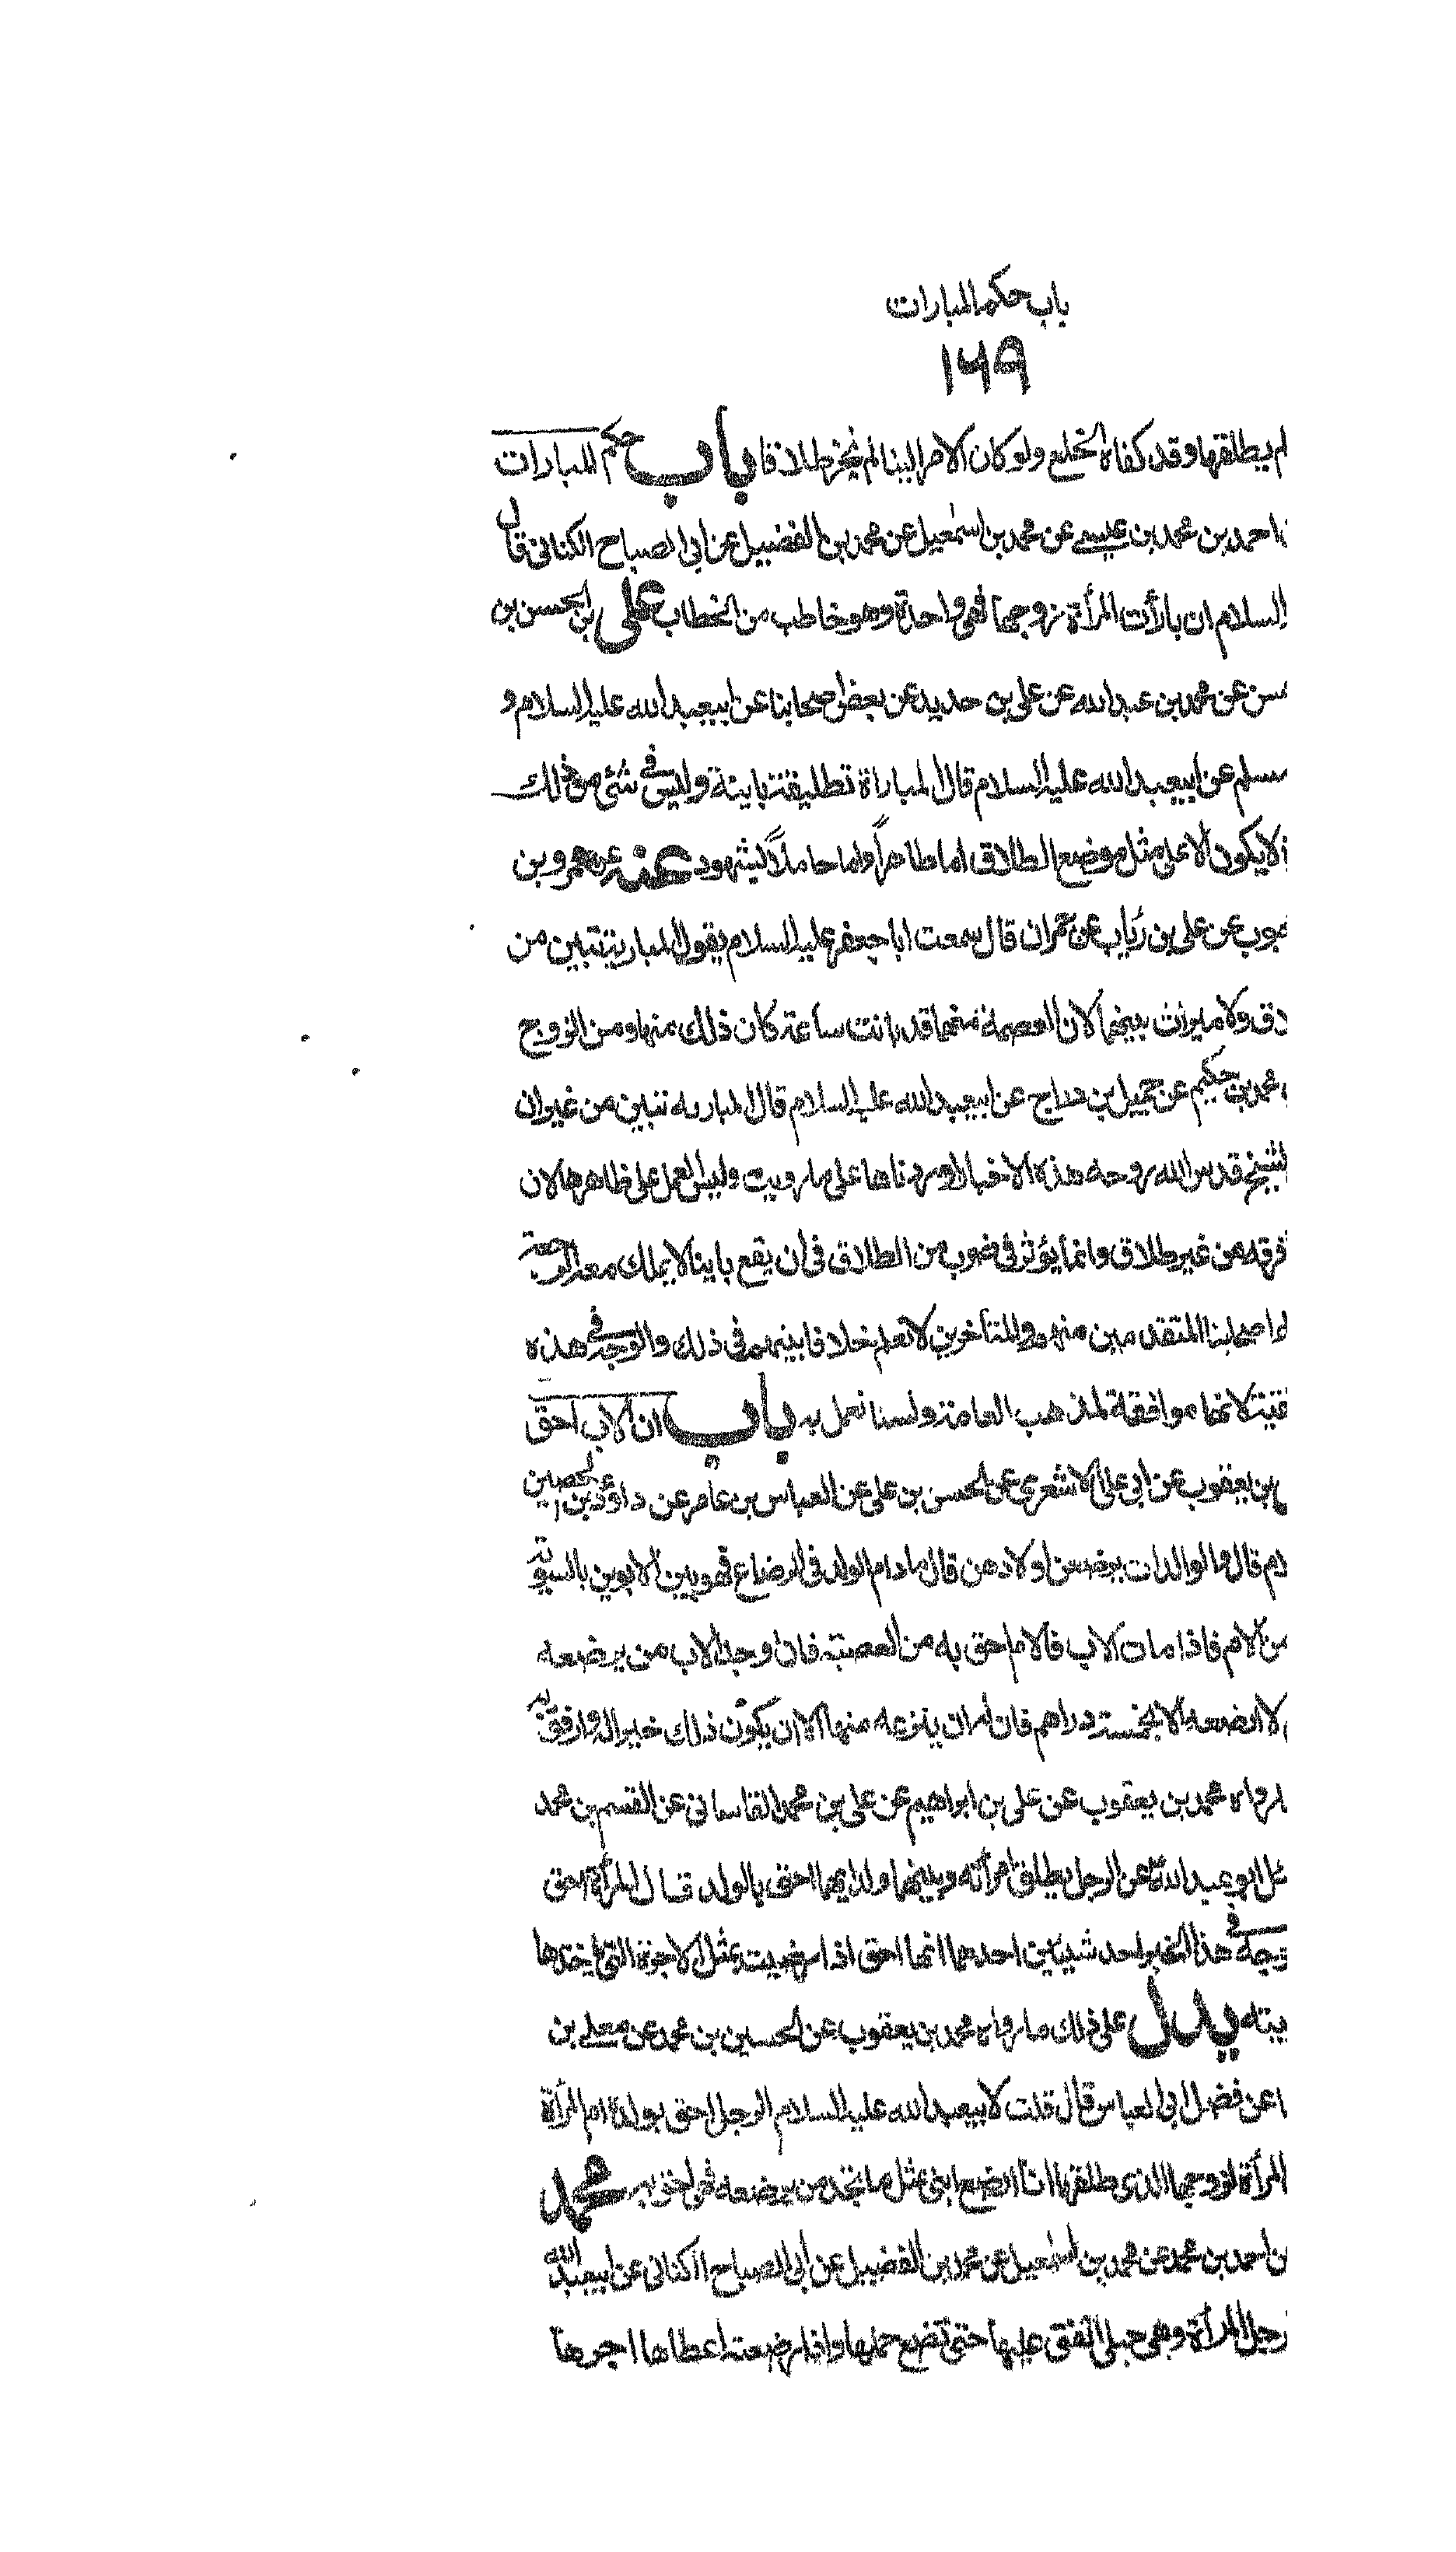 باب حكم المبارات
١٦٩
لم يطلقها وقد كفاه الخلع ولو كان الامر الينا لم نجز طلاقا باب حكم المبارات
احمد بن محمد بن عيسى عن محمد بن اسمعيل عن محمد بن الفضيل عن ابي الصباح الكناني قال
السلام ان بارأت المرأة زوجها فهي واحدة وهو خاطب من الخطاب على بن الحسن بن
عن محمد بن عبد الله عن علي بن حديد عن بعض اصحابنا عن ابيعبد الله عليه السلام و
مسلم عن ابيعبد الله عليه السلام قال المباراة تطليقة باينة وليس في شئ من ذلك
لا يكون الا على مثل موضع الطلاق اما طاهرا واما حاملا بشهود عنه عن عمرو بن
عن علي بن رياب عن حمران قال سمعت ابا جعفر عليه السلام يقول المبارية تبين من
ولا ميراث بينهما لان العصمة منهما قد بانت ساعة كان ذلك منها ومن الزوج
محمد بن حكيم عن جميل بن دراج عن ابيعبد الله عليه السلام قال المباريه تبين من غير ان
الشيخ قدس الله روحه هذه الاخبار اوردناها على ما رويت وليس العمل على ظاهرها لان
فرقه من غير طلاق وانما يؤثر في ضرب من الطلاق في ان يقع باينا لا يملك معه الرجعة
اصحابنا المتقدمين منهم والمتأخرين لا نعلم خلافا بينهم في ذلك والوجه في هذه
لانها موافقة لمذهب العامة ولسنا نعمل به باب ان الاب احق
بن يعقوب عن ابي علي الاشعري عن الحسن بن علي عن العباس بن عامر عن داود بن الحصين
قال والوالدات يرضعن اولادهن قال ما دام الولد في الرضاع فهو بين الابوين بالسوية
من الام فاذا مات الاب فالام احق به من العصبة فان وجد الاب من يرضعه
لا ارضعه الا بخمسة دراهم فان له ان ينزعه منها الا ان يكون ذلك خيرا له وارفق به
رواه محمد بن يعقوب عن علي بن ابراهيم عن علي بن محمد القاساني عن القسم بن محمد
ابو عبد الله عن الرجل يطلق امرأته وبينهما ولد ايهما احق بالولد قال المرأة احق
هذا الخبر احد شيئين احدهما انها احق اذا رضيت بمثل الاجرة التي ياخذها
يدل على ذلك ما رواه محمد بن يعقوب عن الحسين بن محمد عن معلى بن
عن فضل ابي العباس قال قلت لابيعبد الله عليه السلام الرجل احق بولده ام المرأة
المرأة لزوجها الذي طلقها انا ارضع ابني بمثل ما تجد من يرضعه فهي احق به محمد
احمد بن محمد عن محمد بن اسمعيل عن محمد بن الفضيل عن ابي الصباح الكناني عن ابيعبد الله
المرأة وهي حبلى انفق عليها حتى تضع حملها واذا ارضعته اعطاها اجرها